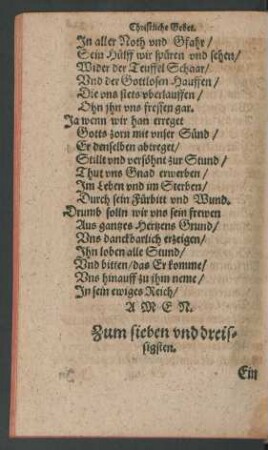 Christliche Gebet.
In aller Noth vnd Gfahr/
Sein Hülff wir spüren vnd sehen/
Wider der Teuffel Schaar/
Vnd der Gottlosen Hauffen/
Die vns stets vberlauffen/
Ohn jhn vns fressen gar.
Ja wenn wir han erreget
Gotts zorn mit vnser Sünd/
Er denselben abtreget/
Stillt vnd versöhnt zur Stund/
Thut vns Gnad erwerben/
Im Leben vnd im Sterben/
Durch sein Fürbitt vnd Wund.
Drumb solln wir vns sein frewen
Aus gantzes Hertzens Grund/
Vns danckbarlich erzeigen/
Ihn loben alle Stund/
Vnd bitten/das Er komme/
Vns hinauff zu ihm neme/
In sein ewiges Reich/
A M E N.
Zum sieben vnd dreis-
sigsten.
Ein